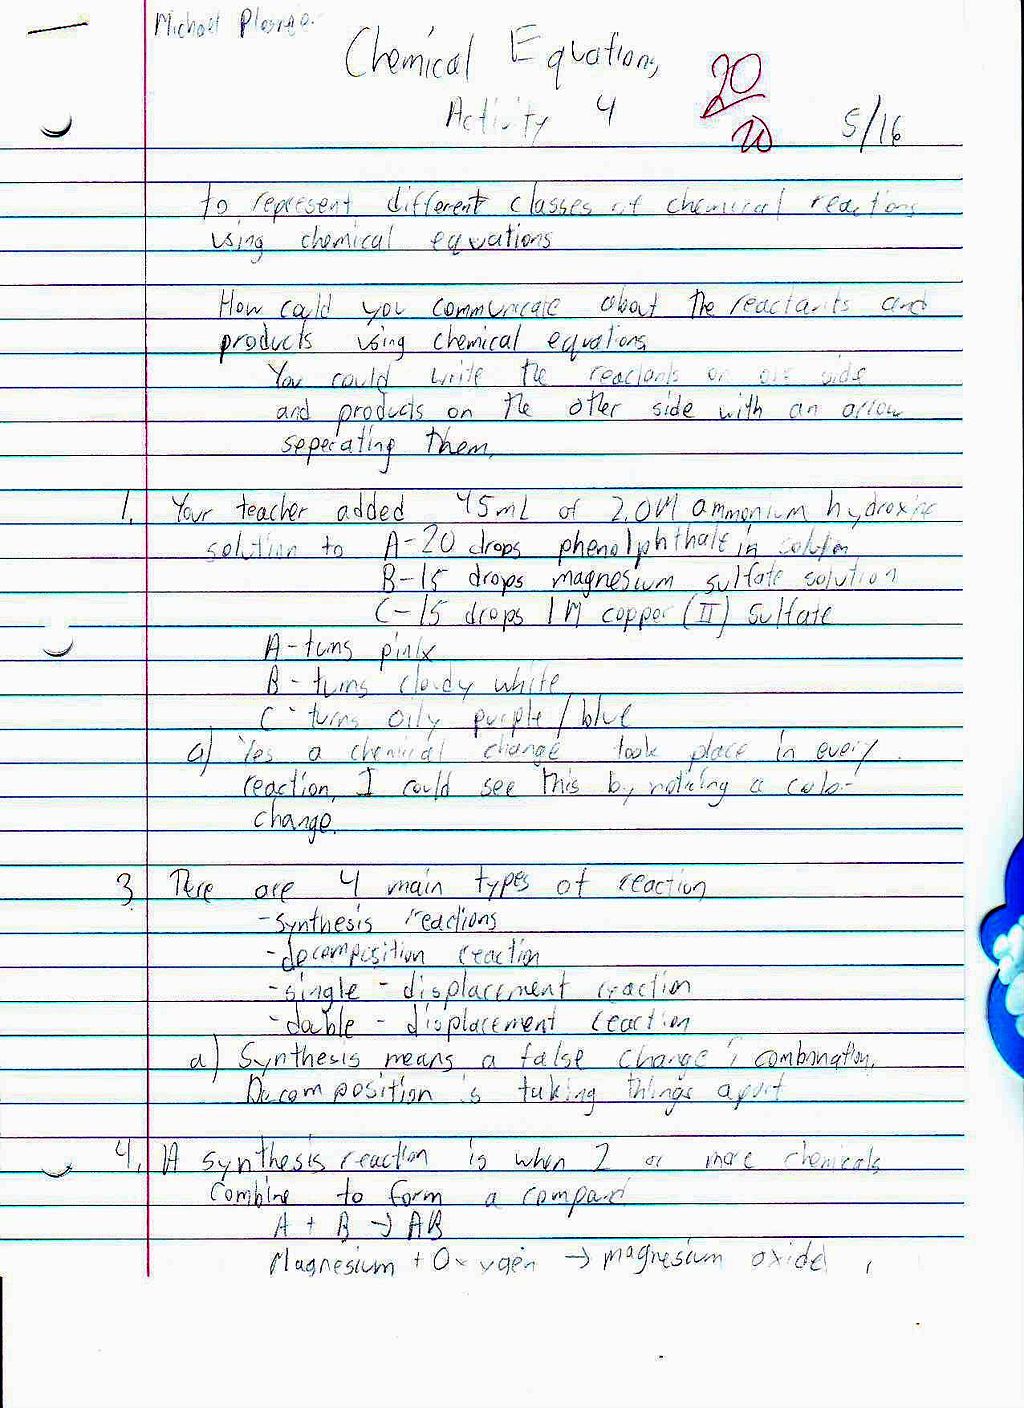 Michael
Chemical Equations
Activity 4
20
20
5/16
to represent different classes of chemical reactions
using chemical equations
How could you communicate about the reactants and
products using chemical equations
You could write the reactants on one side
and products on the other side with an arrow
seperating them.
1. Your teacher added 45mL of 2.0M ammonium hydroxide
solution to A-20 drops phenolphthalein solution
B-15 drops magnesium sulfate solution
C-15 drops 1M copper (II) sulfate
A-turns pink
B-turns cloudy white
C-turns oily purple/blue
a) Yes a chemical change took place in every
reaction, I could see this by noticing a color
change.
3 There are 4 main types of reaction
-synthesis reactions
-decomposition reaction
-single-displacement reaction
-double-displacement reaction
a) Synthesis means a false change, combonation,
Decomposition is taking things apart
4. A synthesis reaction is when 2 or more chemicals
combine to form a
A + B → AB
Magnesium + Oxygen → magnesium oxide